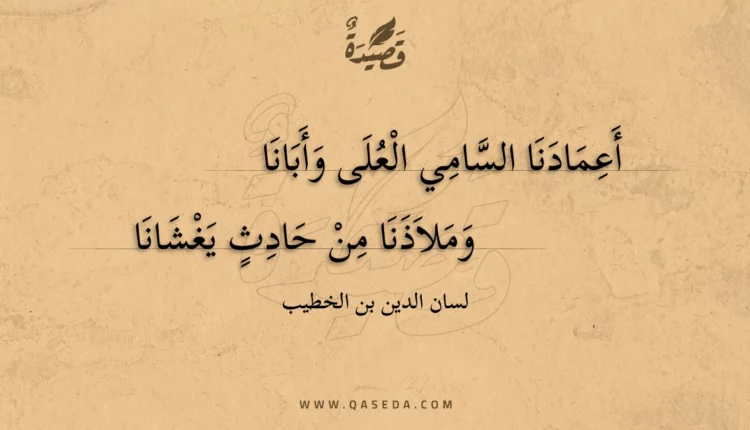 قَصِيْدَةٌ
أَعِمَادَنَا السَّامِي الْعُلَى وَأَبَانَا
وَمَلاَذَنَا مِنْ حَادِثٍ يَغْشَانَا
لسان الدين بن الخطيب
WWW.QASEDA.COM